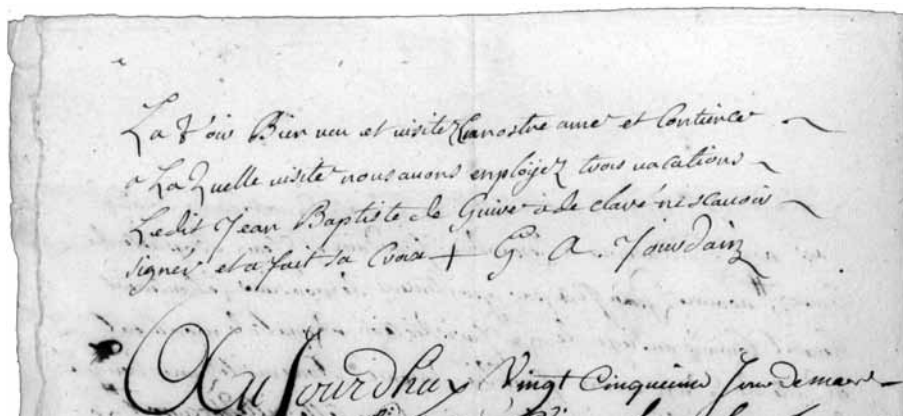 La voir Bien veu et visitez En nostre ame et Contience
a La quelle visite nous avons employez trois vacations
Ledit Jean Baptiste de Guive a de claré ni scavoir
signer et a fait sa Croix + G A Jourdain
Aujourdhuy Vingt Cinquieme Jour de mars